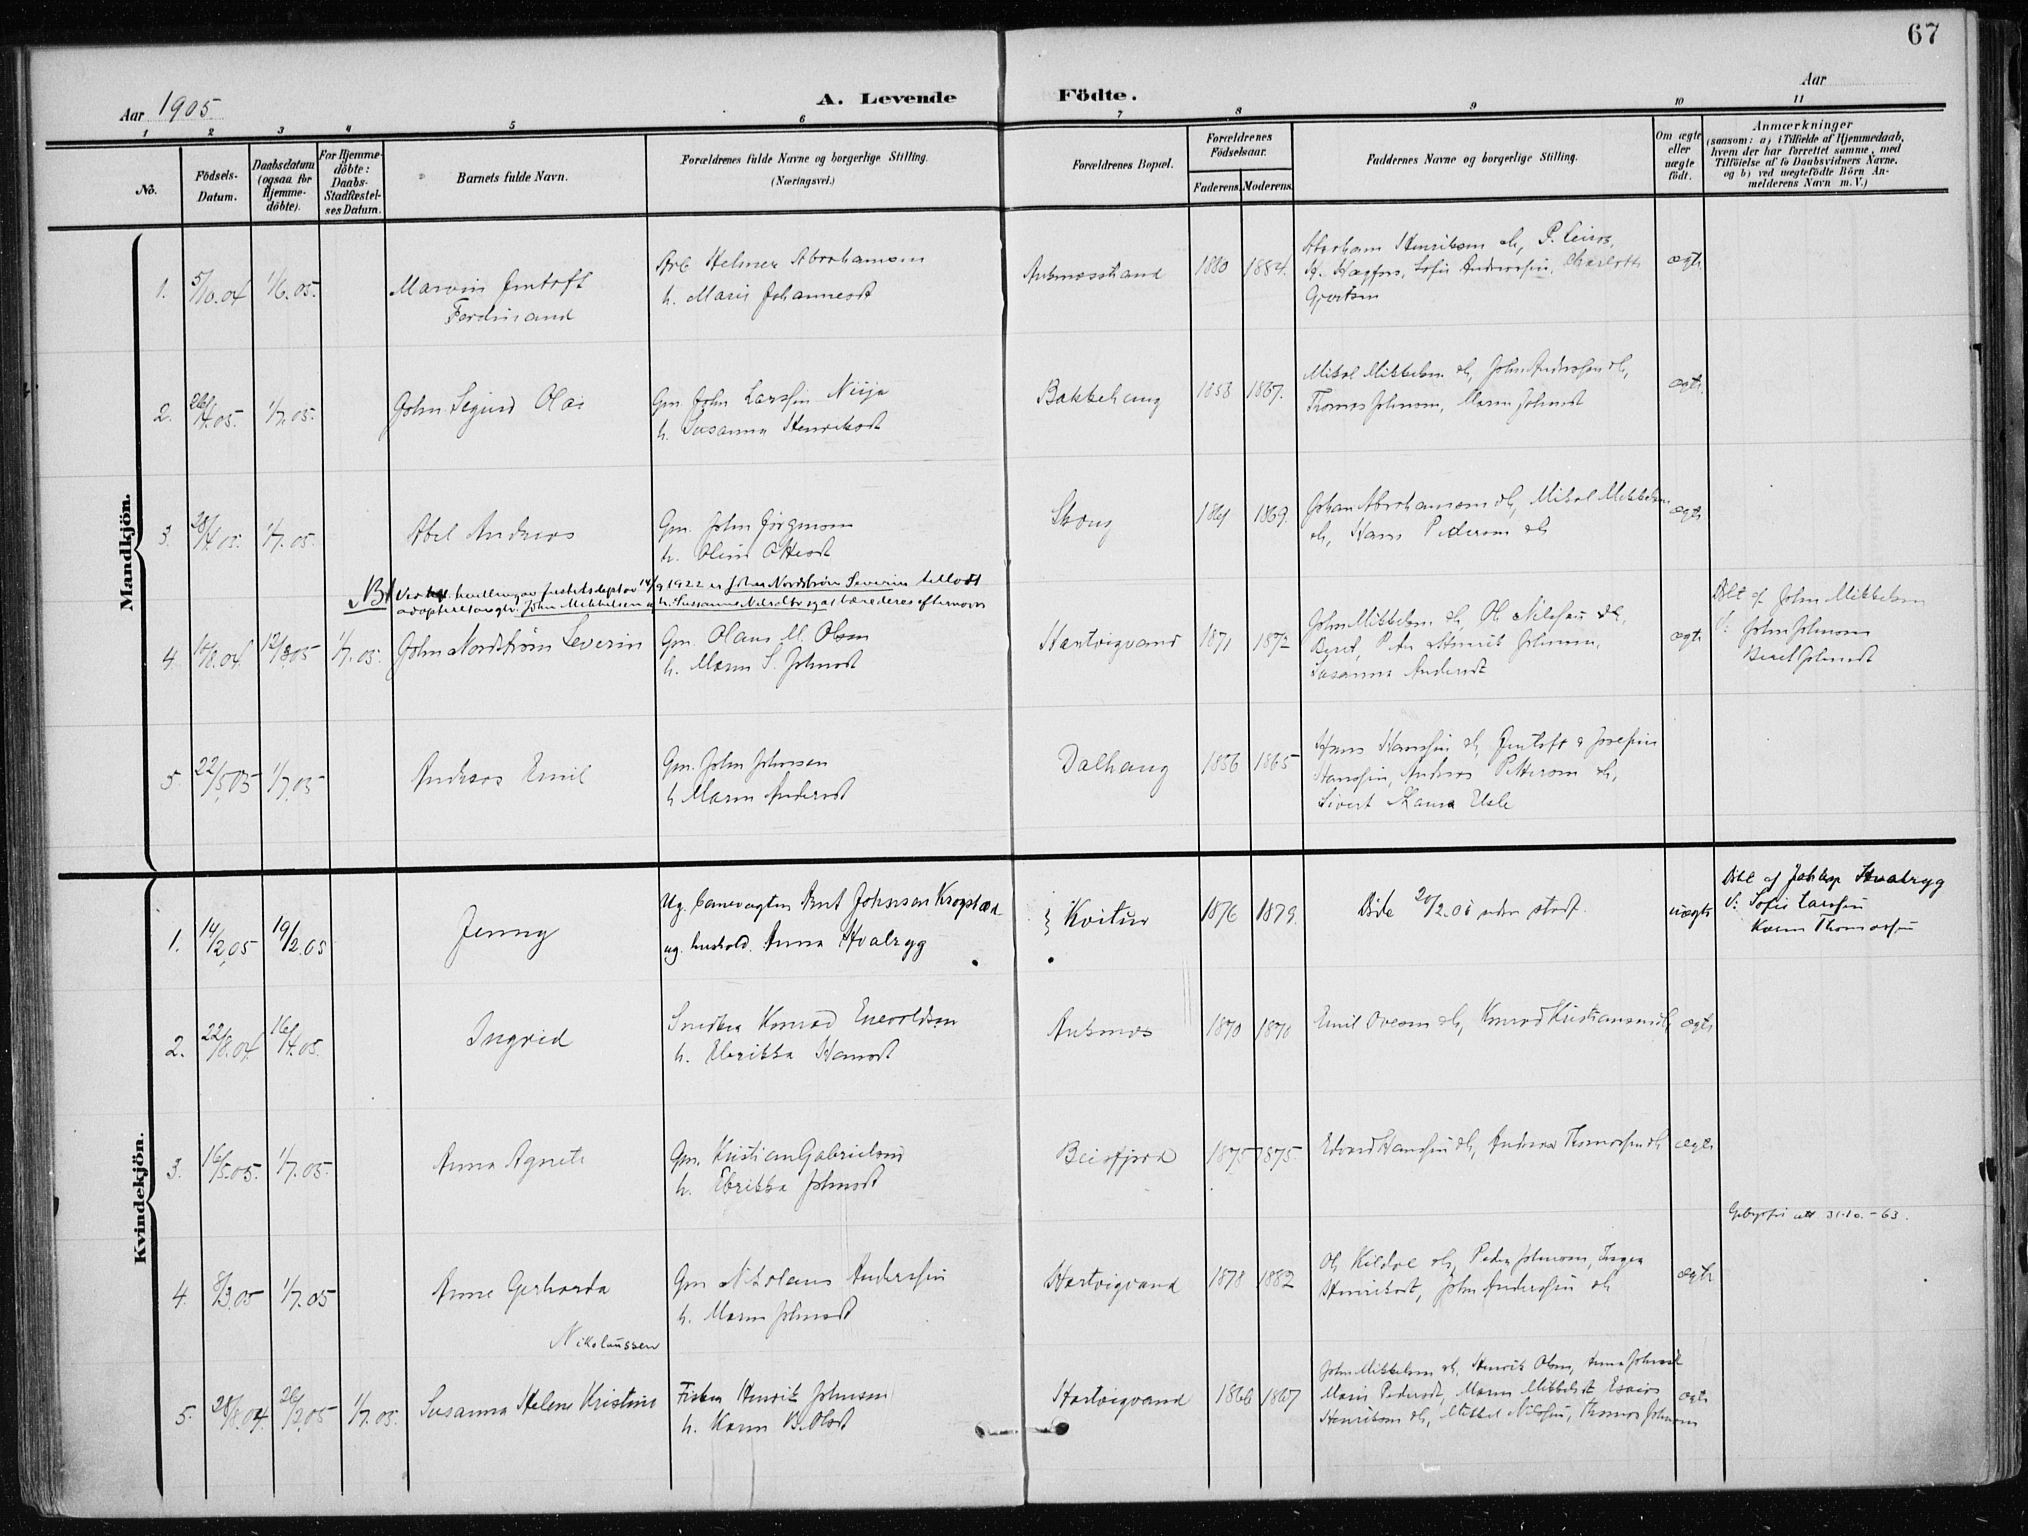 67
Aar 1905
A. Levende Födte.
Aar
1 2 3 4 5 6 7 8 9 10 11
No.
Födsels-
Datum.
Daabsdatum
(ogsaa for
Hjemme-
döbte).
For Hjemme-
döbte:
Daabs-
Stadfæstel-
ses Datum.
Barnets fulde Navn.
Forældrenes fulde Navne og borgerlige Stilling.
(Næringsvei.)
Forældrenes Bopæl.
Forældrenes
Födselsaar.
Faderens. Moderens.
Faddernes Navne og borgerlige Stilling.
Om ægte
eller
uægte
födt.
Anmærkninger
(saasom: a) i Tilfælde af Hjemmedaab,
hvem der har forrettet samme, med
Tilföielse af to Daabsvidners Navne.
og b) ved uægtefödte Börn An-
melderens Navn m. V.)
Mandkjön.
1. 5/10.04 1/6.05. Marvin Ferdinand
Arb Helmer Abrahamsen
h. Marie Johannesdt
1880 1884.
Abraham Henriksen
Sofie Anderssen, Charlotte
ægte
2. 26/4.05. 1/7.05. John Sigurd Olai
Gm. John Larssen Niija
h. Susanna Henriksdt
Bakkehaug 1858 1867.
Mikal Mikkelsen dh, John Anderssen dh,
Thomas Johnsen, Maren Johnsdt
ægte
3. 28/4.05. 1/7.05. Abel Andreas
Gm. John Jörgensen
h. Oline Ottesdt
Skoug 1861 1869.
Johan Abrahamsen dh, Mikal Mikkelsen
dh, Hans Pedersen dh
ægte
NB! 14/9 1922 er John Nordström Severin tilladt
John Mikkelsen
4. 10/8.04. 12/3.05 1/7.05. John Nordström Severin
Gm. Olaus M. Olsen
h. Maren S. Johnsdt
Hartvigvand 1871 1872
John Mikkelsen dh, Ol Nilssen dh,
Peder Henrik Johnsen,
Susanna Andersdt
ægte
Döbt af John Mikkelsen
V: John Johnsen
Berit Johnsdt
5. 22/5.05 1/7.05 Andreas Emil
Gm. John Johnsen
h Maren Andersdt
Dalhaug 1856 1865
Hans Hanssen dh, Jentoft & Josefine
Hanssen, Andreas Pettersen dh,
Sivert
Kvindekjön.
1. 14/2.05 19/2.05 Jenny
Ug. Banevogter Arnt Johnsen Krogstad
ug. hushold. Anna Hvalryg
1876 1879.
Döde 20/2.05
uægte
Döbt af Jakob Hvalryg
V: Sofie Larssen
Karen Thomassen
2. 22/8.04 16/4.05. Ingrid
Snedker Konrad Enevoldsen
h. Ebrikka Hansdt
Ankenæs 1870 1870
Emil Ovesen dh, Konrad Kristiansen dh
ægte
3. 16/5.05. 1/7.05. Anna Agnete
Gm. Kristian Gabrielsen
h. Ebrikka Johnsdt
Beisfjord 1875 1875.
Edvard Hanssen dh, Andreas Thomassen dh
ægte
Gebyrfri att 31.10.-63.
4. 8/3.05 1/7.05 Anne Gerharda
Nikolaussen
Gm Nikolaus Anderssen
h. Maren Johnsdt
Hartvigvand 1878 1882
Ol Kildal dh, Peder Johnsen, Inga
Henriksdt, John Anderssen dh
ægte
5. 28/8.04. 26/2.05 1/7.05. Susanna Helene Kristine
Fisker Henrik Johnsen
h. Karen B. Olsdt
Hartvigvand 1866 1867
John Mikkelsen dh, Henrik Olsen, Anna Johnsdt
Marie Pedersdt, Maren Mikkelsdt, Esaias
Henriksen dh, Mikkel Nilssen, Thomas Johnsen
ægte